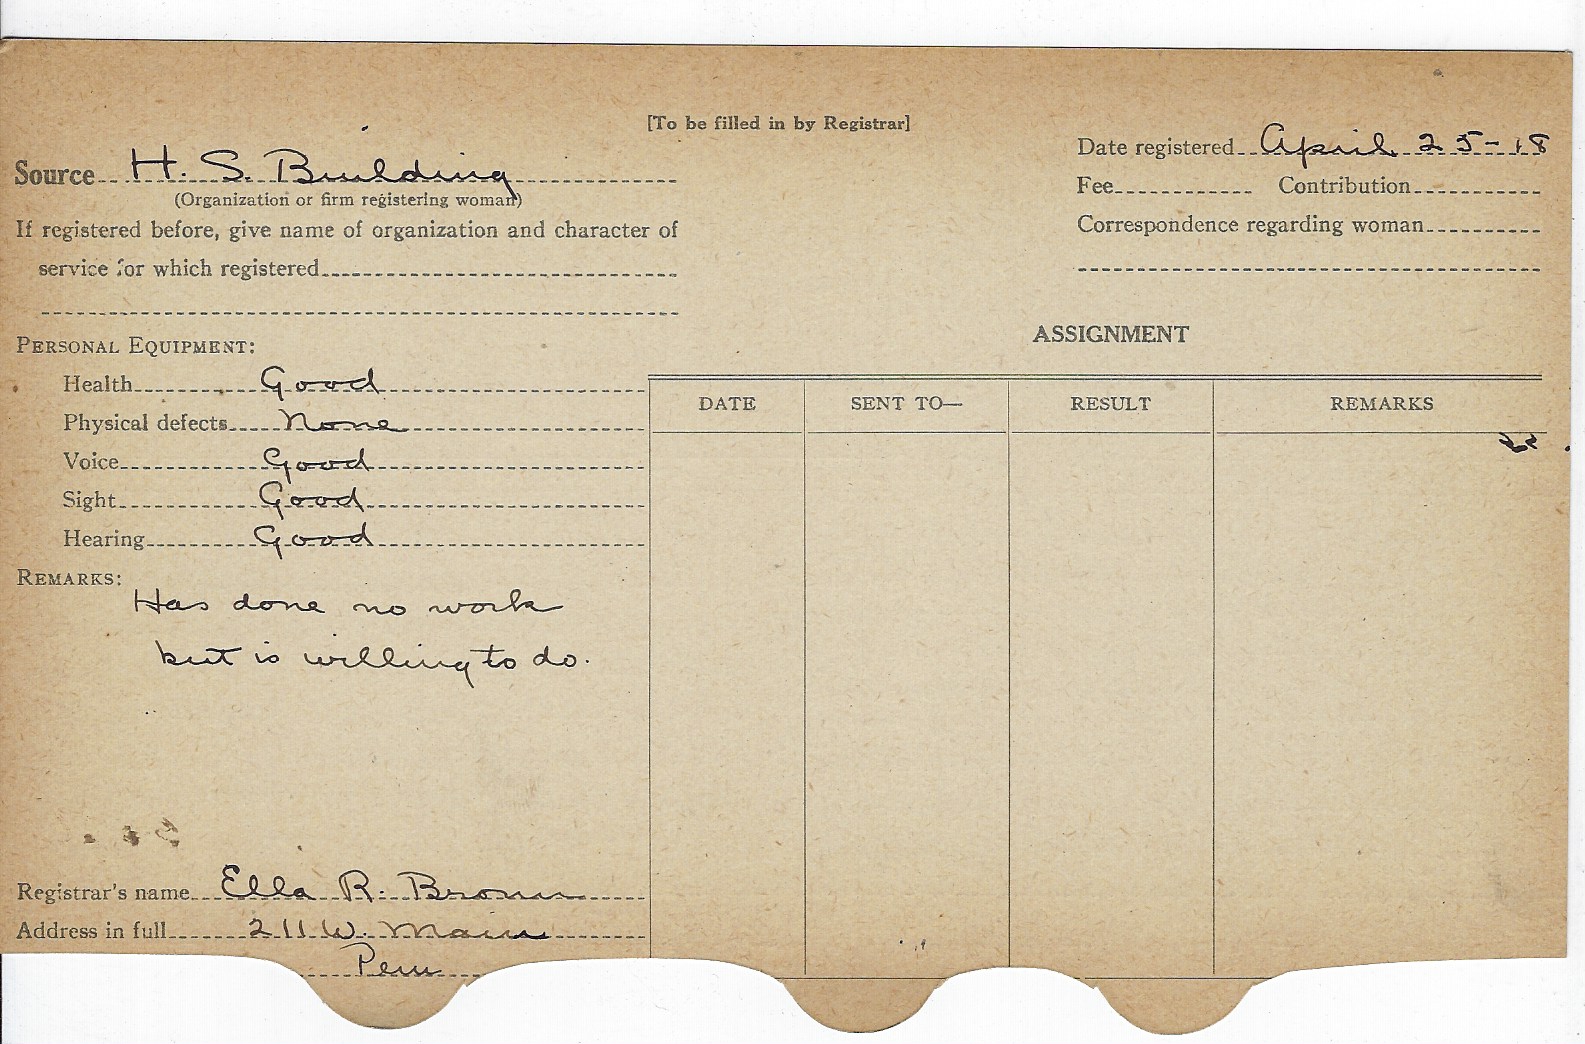 [To be filled in by Registrar]
Source H. S. Building
(Organization or firm registering woman)
If registered before, give name of organization and character of
service for which registered
Date registered April 25-18
Fee Contribution
Correspondence regarding woman
PERSONAL EQUIPMENT:
Health Good
Physical defects None
Voice Good
Sight Good
Hearing Good
REMARKS:
Has done no work
but is willing to do.
Registrar's name Ella R. Brown
Address in full 211 W. Main
Peru
ASSIGNMENT
DATE SENT TO— RESULT REMARKS